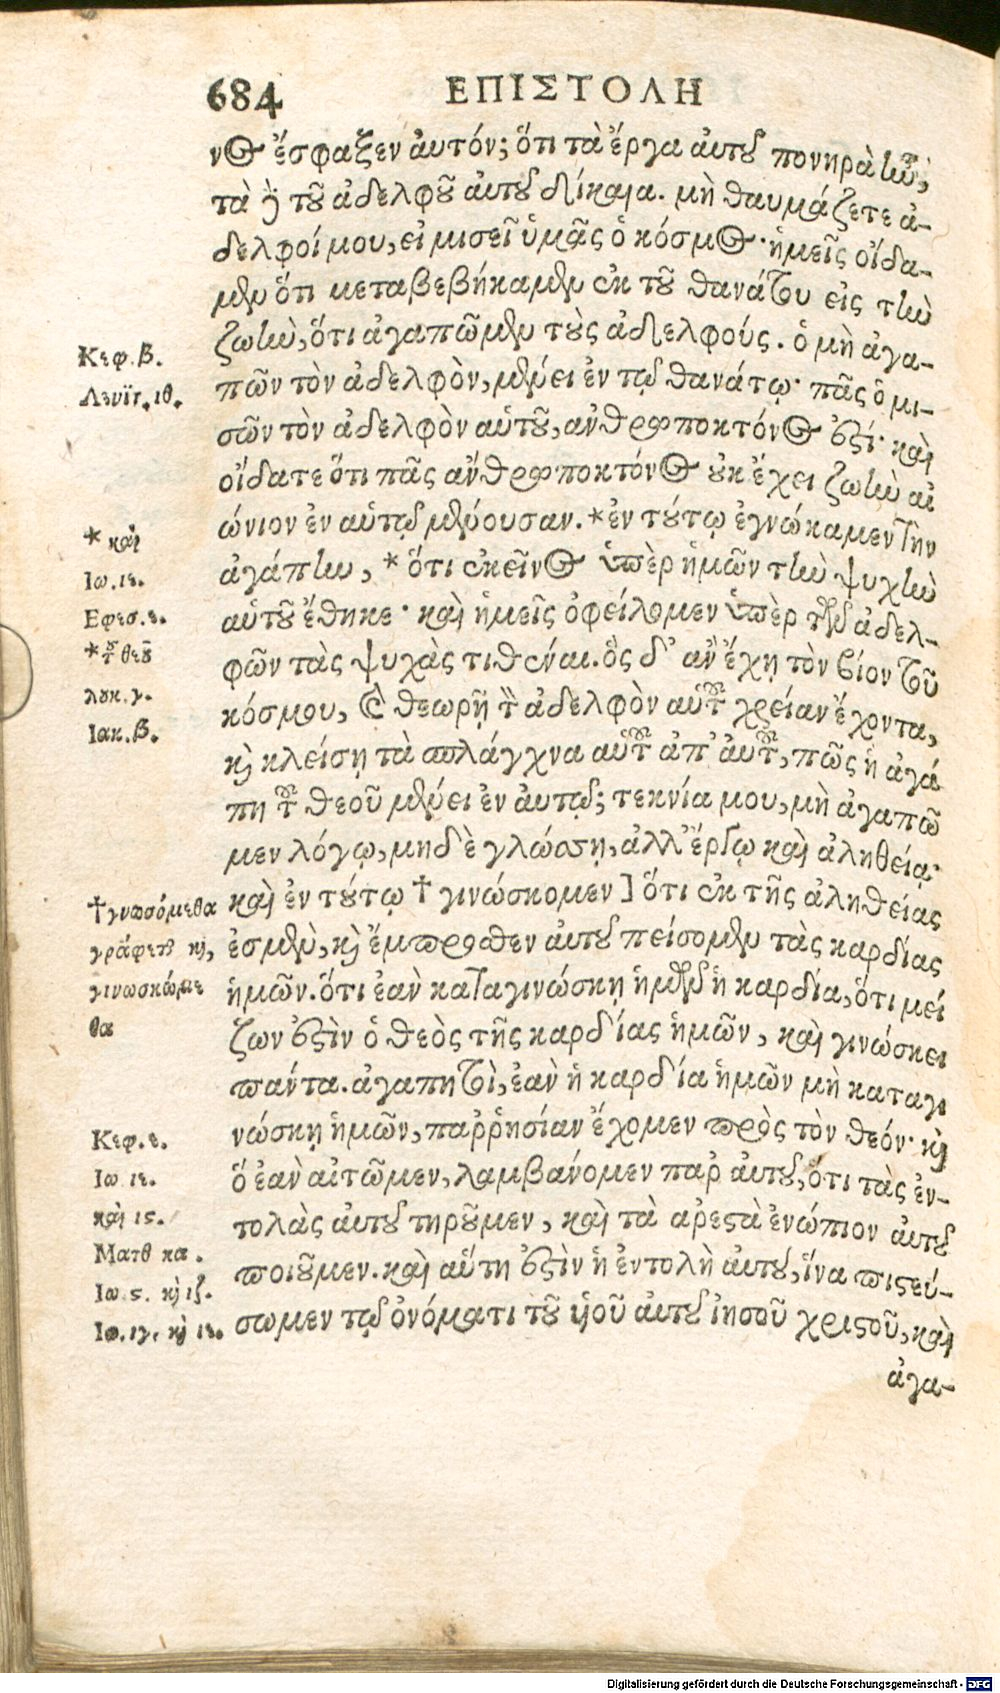 684 ΕΠΙΣΤΟΛΗ
νος ἔσφαξεν ἀυτόν; ὅτι τὰ ἔργα ἀυτοῦ πονηρὰ ἦν,
τὰ δὲ τοῦ ἀδελφοῦ ἀυτοῦ δίκαια. μὴ θαυμάζετε ἀ-
δελφοί μου, εἰ μισεῖ ὑμᾶς ὁ κόσμος· ἡμεῖς οἴδα-
μεν ὅτι μεταβεβήκαμεν ἐκ τοῦ θανάτου εἰς τὴν
ζωὴν, ὅτι ἀγαπῶμεν τοὺς ἀδελφούς. ὁ μὴ ἀγα-
Κεφ. β.
πῶν τὸν ἀδελφὸν, μένει ἐν τῷ θανάτῳ· πᾶς ὁ μι-
Λευϊτ. ιθ.
σῶν τὸν ἀδελφὸν αὑτοῦ, ἀνθρωποκτόνος ἐστί· καὶ
οἴδατε ὅτι πᾶς ἀνθρωποκτόνος οὐκ ἔχει ζωὴν αἰ
ώνιον ἐν αὑτῷ μένουσαν. *ἐν τούτῳ ἐγνώκαμεν τὴν
* καὶ
ἀγάπην, * ὅτι ἐκεῖνος ὑπὲρ ἡμῶν τὴν ψυχὴν
Ιω. ιε.
αὑτοῦ ἔθηκε· καὶ ἡμεῖς ὀφείλομεν ὑπὲρ τῶν ἀδελ-
Εφεσ. ε.
φῶν τὰς ψυχὰς τιθέναι. ὃς δ' ἂν ἔχῃ τὸν βίον τοῦ
* τοῦ θεοῦ
κόσμου, καὶ θεωρῇ τὸν ἀδελφὸν αὑτοῦ χρείαν ἔχοντα,
λουκ. γ.
Ιακ. β.
καὶ κλείσῃ τὰ σπλάγχνα αὑτοῦ ἀπ' ἀυτοῦ, πῶς ἡ ἀγά
πη τοῦ θεοῦ μένει ἐν ἀυτῷ; τεκνία μου, μὴ ἀγαπῶ
μεν λόγῳ, μηδὲ γλώσσῃ, ἀλλ' ἔργῳ καὶ ἀληθείᾳ·
καὶ ἐν τούτῳ † γινώσκομεν] ὅτι ἐκ τῆς ἀληθείας
† γνωσόμεθα
ἐσμὲν, καὶ ἔμπροσθεν ἀυτοῦ πείσομεν τὰς καρδίας
γράφεται καὶ,
ἡμῶν. ὅτι ἐὰν καταγινώσκῃ ἡμῶν ἡ καρδία, ὅτι μεί
γινωσκώμε
ζων ἐστὶν ὁ θεὸς τῆς καρδίας ἡμῶν, καὶ γινώσκει
θα
πάντα. ἀγαπητοὶ, ἐὰν ἡ καρδία ἡμῶν μὴ καταγι
νώσκῃ ἡμῶν, παῤῥησίαν ἔχομεν πρὸς τὸν θεόν· καὶ
Κεφ. ε.
ὅ ἐὰν αἰτῶμεν, λαμβάνομεν παρ ἀυτοῦ, ὅτι τὰς ἐν-
Ιω. ιε.
τολὰς ἀυτοῦ τηροῦμεν, καὶ τὰ ἀρεστὰ ἐνώπιον ἀυτοῦ
καὶ ις.
Ματθ κα.
ποιοῦμεν. καὶ αὕτη ἐστὶν ἡ ἐντολὴ ἀυτοῦ, ἵνα πιστεύ-
Ιω ς. καὶ ιζ.
σωμεν τῷ ὀνόματι τοῦ υἱοῦ ἀυτοῦ ἰησοῦ χριστοῦ, καὶ
Ιω. ιγ. καὶ ιε.
ἀγα-
Digitalisierung gefördert durch die Deutsche Forschungsgemeinschaft - DFG